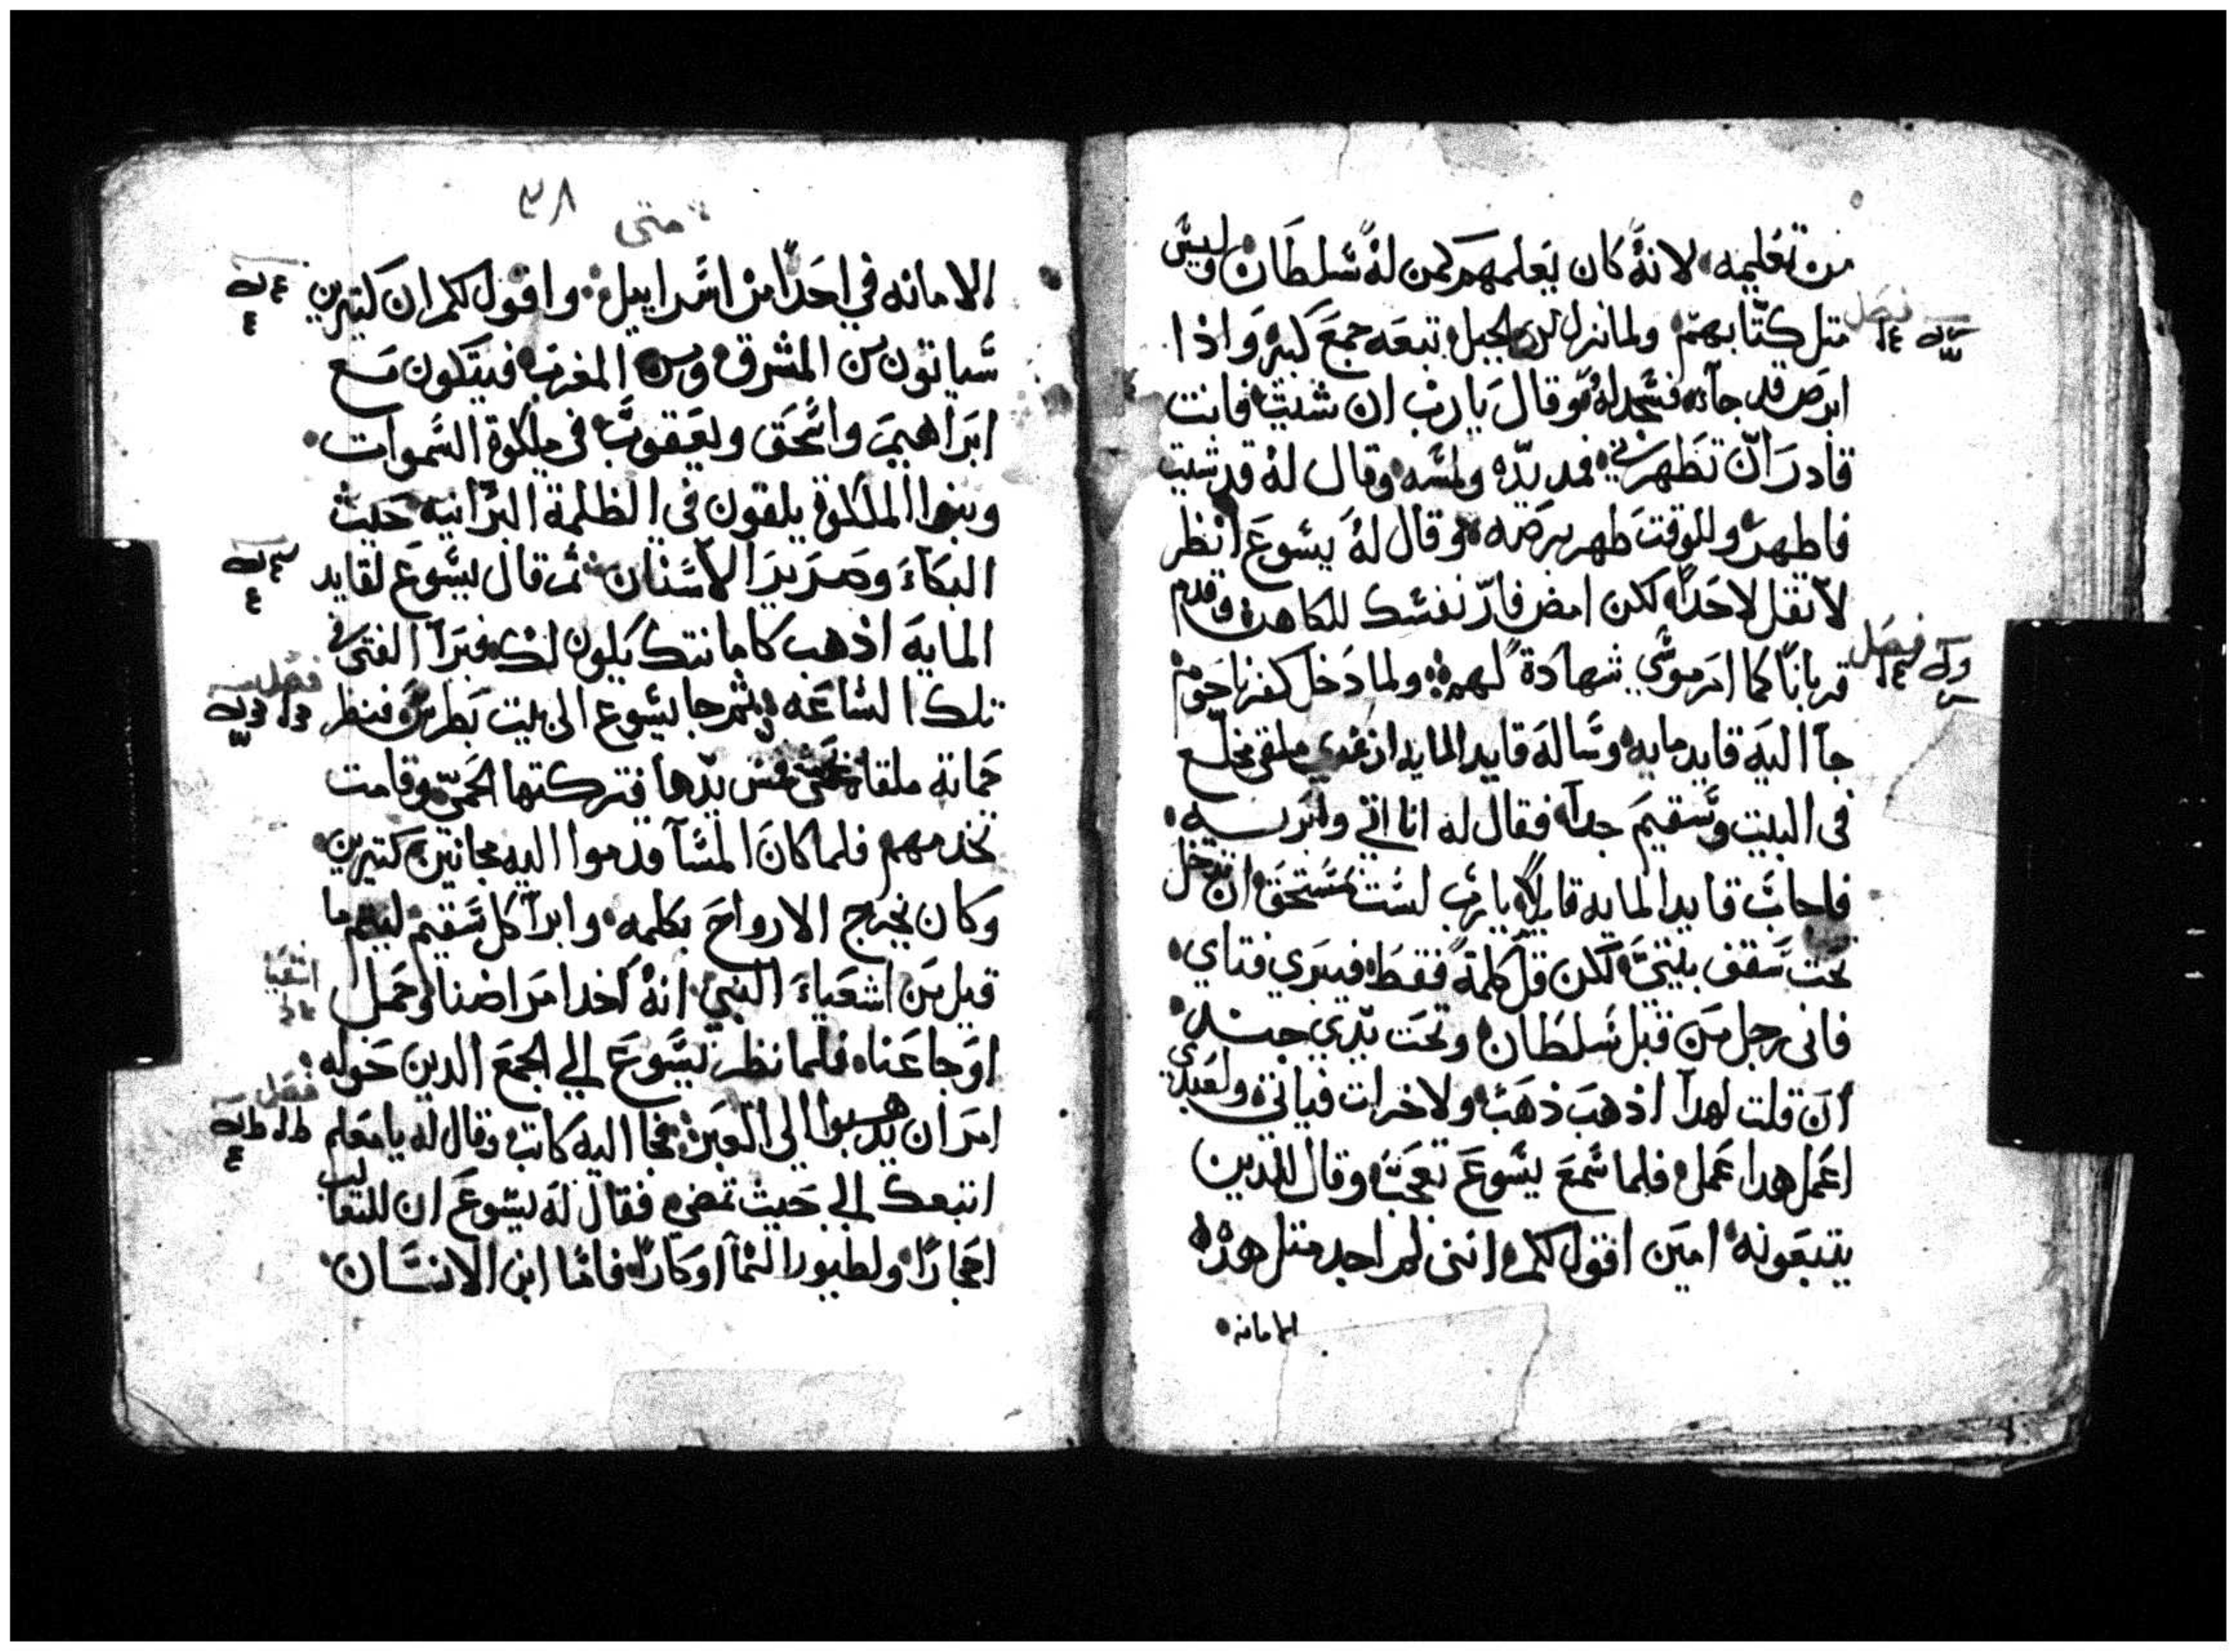 من تعليمه لانه كان يعلمهم كمن له سلطان وليس
متل كتابهم ولما نزل من الجبل تبعه جمع كبير واذا
فصل
ابرص قد جآه فسجد له وقال يا رب ان شيت فانت
قادر ان تطهرني فمد يده ولمسه وقال له قد شيت
فاطهر وللوقت طهر برصه وقال له يسوع انظر
لا تقل لاحدا لكن امض فار نفسك للكاهن وقدم
قربانا كما امر موسي شهادة لهم ولما دخل كفرناحوم
فصل
جآ اليه قايد مايه وساله قايد المايه ان فتي ملقي مخلع
في البيت وسقيم جدآ فقال له انا اتي وابريه
فاجاب قايد المايه قايلا يا رب لست مستحق ان تدخل
تحت سقف بيتي لكن قل كلمة فقط فيبري فتاي
فاني رجل من قبل سلطان وتحت يدي جند
ان قلت لهدا اذهب ذهب ولاخر ات فياتي ولعبدي
اعمل هدا عمل فلما سمع يسوع تعجب وقال للدين
يتبعونه امين اقول لكم انني لم اجد متل هذه
الامانه
٣٨
متى
الامانه في احدا من اسراييل واقول لكم ان كتيرين
سياتون من المشرق ومن المغرب فيتكون مع
ابراهيم واسحق ويعقوب في ملكوة السموات
وبنوا الملكوة يلقون في الظلمة البرانيه حيث
البكآء وصرير الاسنان ثم قال يسوع لقايد
المايه اذهب كامانتك يكون لك فبرآ الفتى في
تلك الساعه ثم جا يسوع الى بيت بطرس فنظر
فصل
حماته ملقاه تحمى فمس يدها فتركتها الحمى وقامت
تخدمهم فلما كان المسآ قدموا اليه مجانين كتيرين
وكان يخرج الارواح بكلمه وابرآ كل سقيم ليتم ما
قيل من اشعياء النبي انه اخد امراضنا وحمل
اشعيا
اوجاعنا فلما نظر يسوع الي الجمع الدين حوله
فصل
امر ان يدهبوا الي العبر فجا اليه كاتب وقال له يا معلم
اتبعك الي حيث تمضي فقال له يسوع ان للتعالب
احجارا ولطيور السمآ اوكارا فاما ابن الانسان